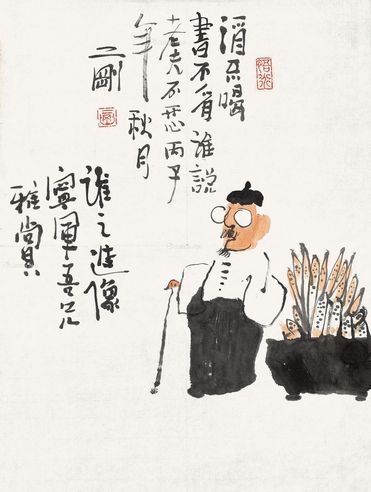 酒喝
書不看誰說
老虎不惡丙子
年秋月
二剛
誰之造像
寧軍吾兄
雅賞